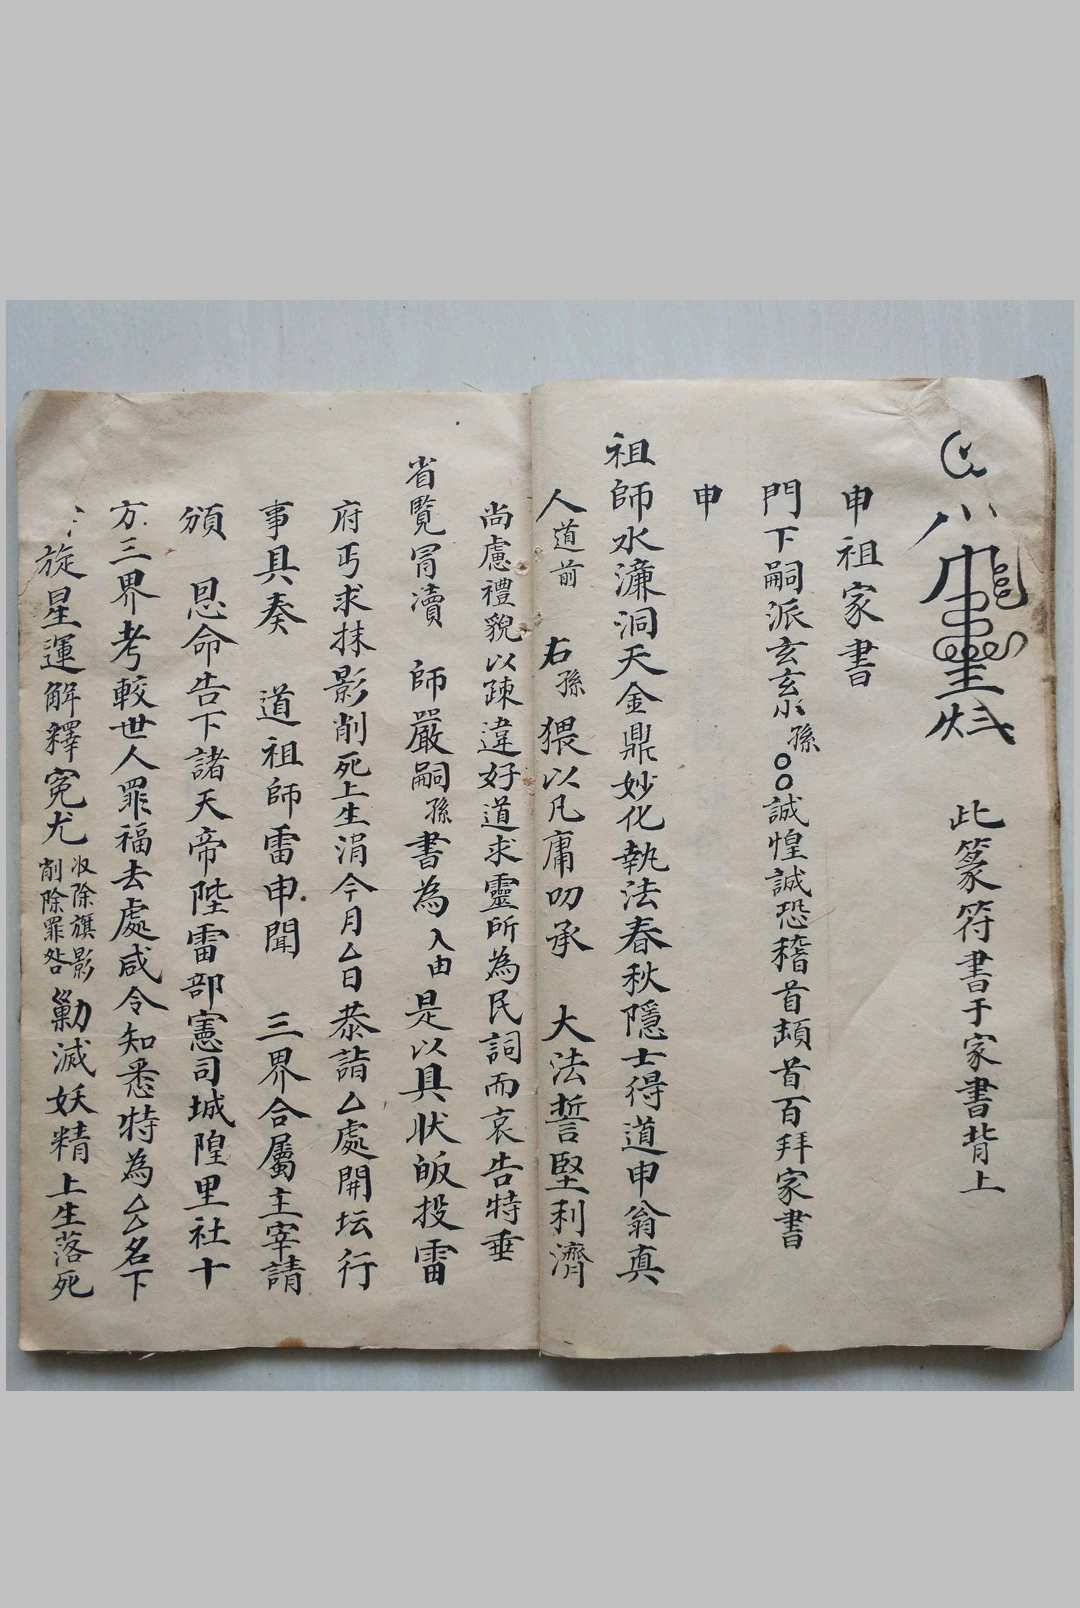 此篆符書于家書背上
申祖家書
門下嗣派玄玄小孫〇〇誠惶誠恐稽首頓首百拜家書
申
祖師水濂洞天金鼎妙化執法春秋隱士得道申翁真
人道前 右孫猥以凡庸叨承 大法誓堅利濟
尚慮禮貌以疎違好道求靈所為民詞而哀告特垂
省覧冐瀆 師嚴嗣孫書為入由是以具状皈投雷
府丐求抹影削死上生涓今月厶日恭詣厶處開坛行
事具奏 道祖師雷申聞 三界合屬主宰請
頒 恩命告下諸天帝陛雷部憲司城隍里社十
方三界考較世人罪福去處咸令知悉特為厶厶名下
旋星運解釋寃尤
除旗影
削除罪咎
勦滅妖精上生落死